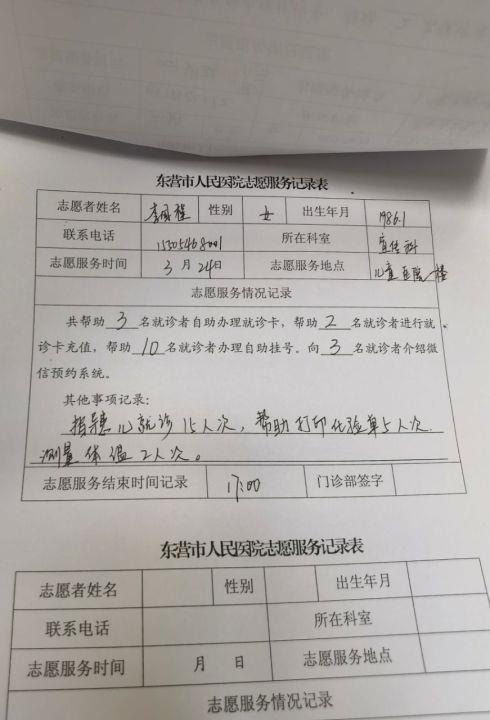 东营市人民医院志愿服务记录表
志愿者姓名 性别 女 出生年月 1986.1
联系电话 所在科室 宣传科
志愿服务时间 3月24日 志愿服务地点 儿童医院一楼
志愿服务情况记录
共帮助3名就诊者自助办理就诊卡，帮助2名就诊者进行就
诊卡充值，帮助10名就诊者办理自助挂号。向3名就诊者介绍微
信预约系统。
其他事项记录：
指导患儿就诊15人次，帮助打印化验单5人次
测量体温2人次。
志愿服务结束时间记录 17:00 门诊部签字
东营市人民医院志愿服务记录表
志愿者姓名 性别 出生年月
联系电话 所在科室
志愿服务时间 月 日 志愿服务地点
志愿服务情况记录